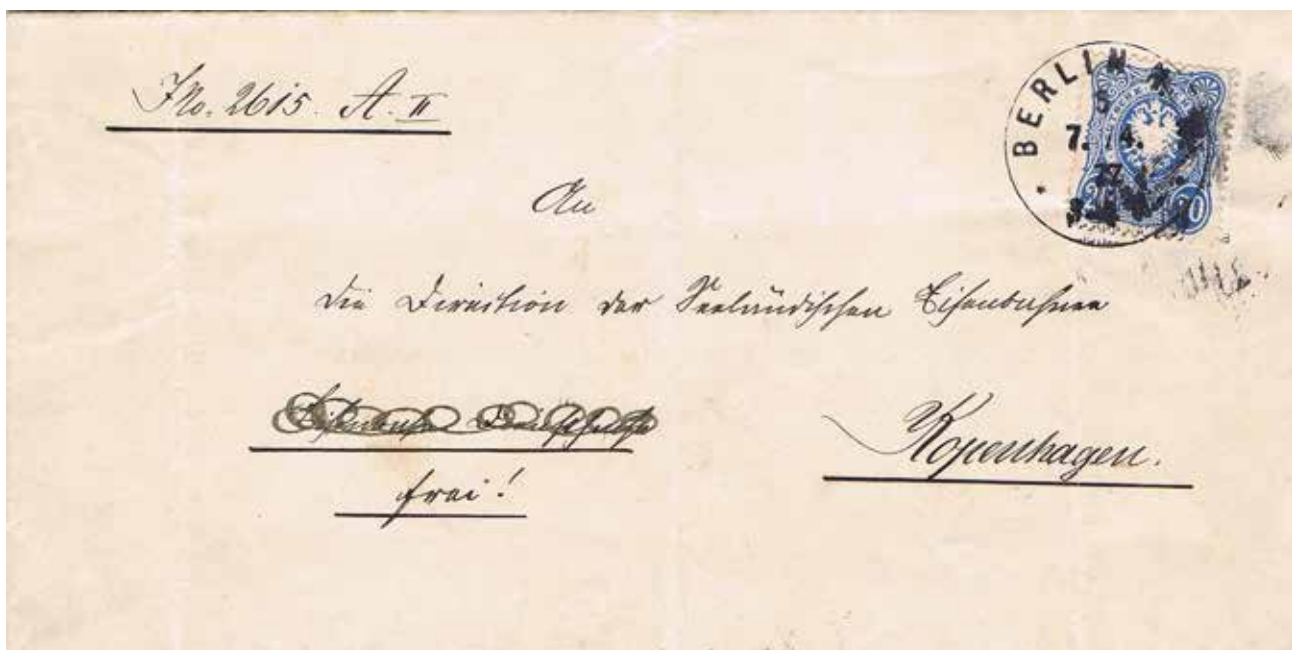 JNo. 2615. A. II
BERLIN
7. 4.
77
20
An
die Direction der Seeländischen Eisenbahnen
Kopenhagen.
frei!